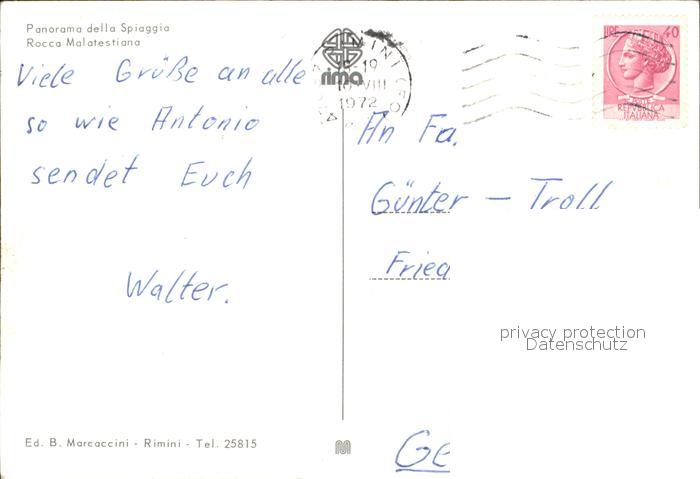 Panorama della Spiaggia
Rocca Malatestiana
Viele Grüße an alle
so wie Antonio
sendet Euch
Walter.
Ed. B. Marcaccini - Rimini - Tel. 25815
rima
RIMINI (FO)
-19
VIII
1972
LIRE 40
REPUBBLICA
ITALIANA
An Fa.
Günter - Troll
Fried
privacy protection
Datenschutz
Ge